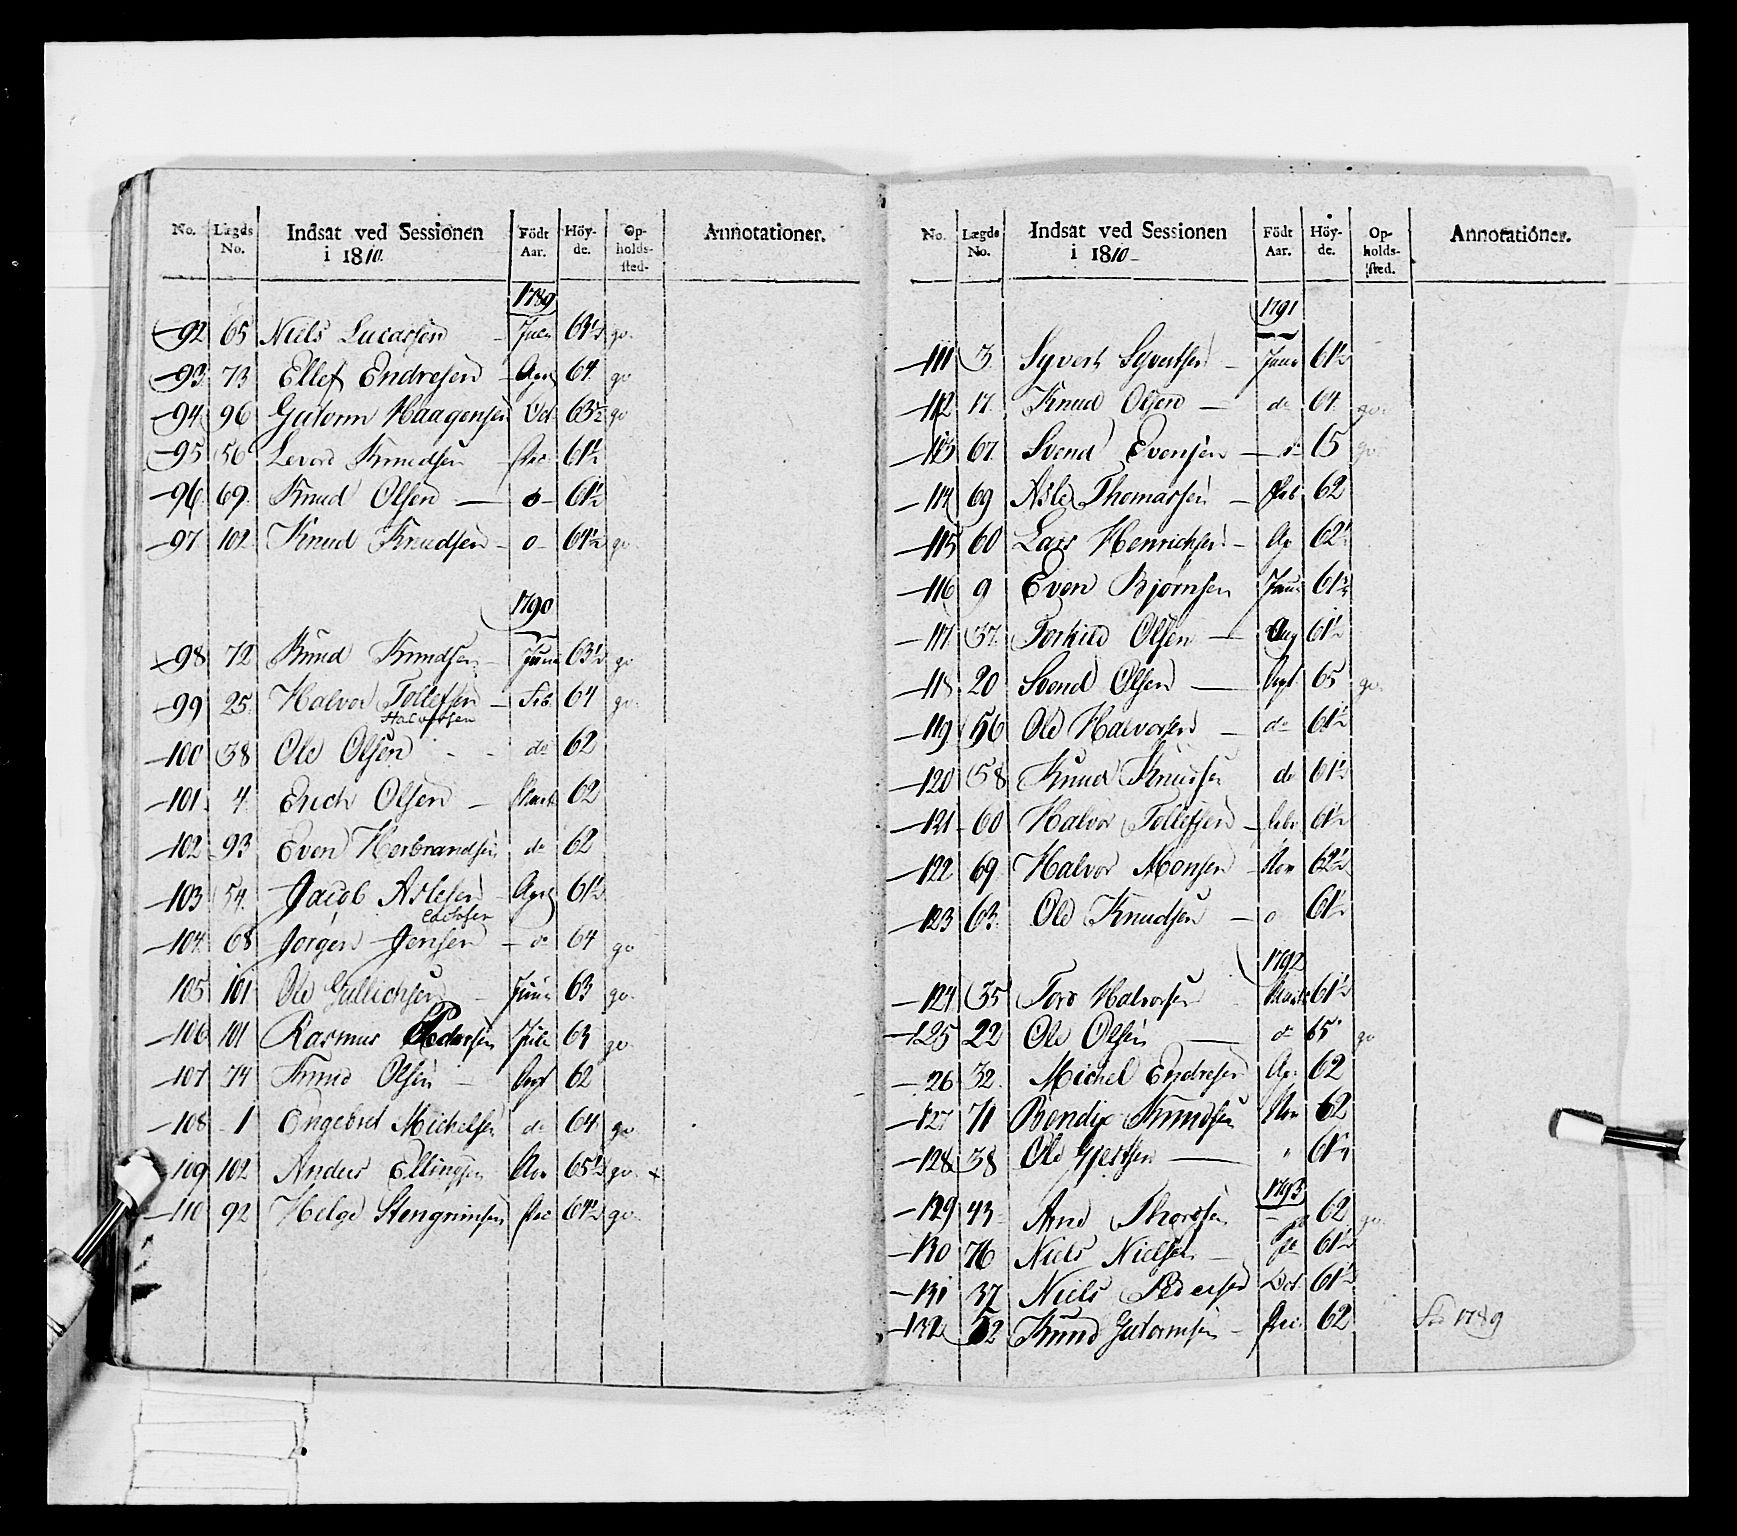 No. Lægds No. Indsat ved Sessionen i 1810. Födt Aar. Höy-de. Op-holds-sted. Annotationer.
1789
92 65 Niels Lucassen 63½ go
93 73 Ellef Endresen Apr 64 go
94 96 Gutorm Haagensen Oct 63½ go
95 56 Knudsen Dec 61½
96 69 Knud Olsen o 61½
97 102 Knud Knudsen o 64½ go
1790
98 72 Knud Knudsen 63½ go
99 25 Halvor Tollefsen Feb 64 go
Halvorsen
100 38 Ole Olsen do 62
101 4 Erich Olsen 62
102 93 Even Herbrandsen do 62
103 54 Jacob Aslesen Apr 61½
104 68 Jørgen Jensen 64 go
105 101 Ole Gullichsen 63 go
106 101 Rasmus Pedersen Jule 63 go
107 74 Knud Olsen 62
108 1 Engebret Michelsen do 64 go
109 102 Anders Ellingsen 65½ go x
110 92 Helge Dec 64½ go
No. Lægds No. Indsat ved Sessionen i 1810 Födt Aar. Höy-de. Op-holds-sted. Annotationer.
1791
111 3 Syvert Syvertsen Janu 61½
112 17 Knud Olsen do 64 go
113 67 Svend Evensen 65 go
114 69 Asle Thomassen Feb 62
115 60 Lars Henrichsen Ap 62½
116 9 Even Bjørnsen 61½
117 37 Torkild Olsen Aug 61½
118 20 Svend Olsen 65 go
119 56 Ole Halvorsen do 61½
120 58 Knud Knudsen do 61½
121 60 Halvor Tollefsen 61½
122 69 Halvor Monsen Nov 62½
123 63 Ole Knudsen o 61½
1792
124 35 Tord Halvorsen 61½
125 22 Ole Olsen 65 go
26 32 Michel Endresen Ap 62
127 71 Bendix Knudsen Nov 62
128 38 Ole Gjertsen " 61½
1793
129 43 Arne Thordsen 62 go
130 76 Niels Nielsen 61½
131 37 Niels Pedersen Oct 61½
132 52 Knud Gutormsen Dec 62 1789